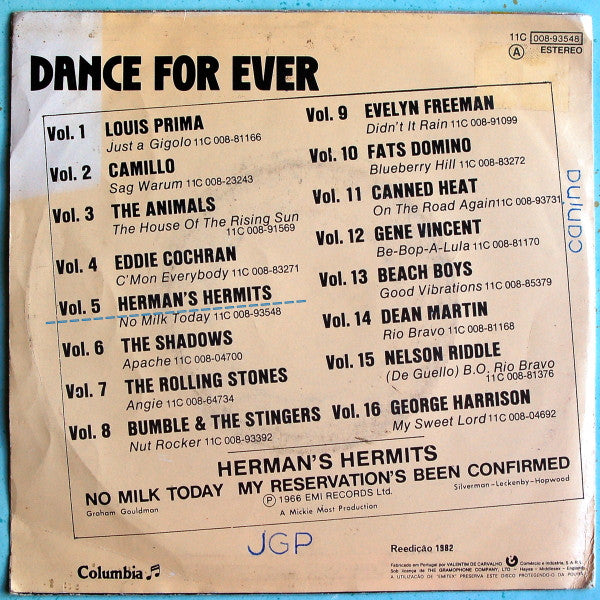 11C 008-93548
A ESTEREO
DANCE FOR EVER
Vol. 1 LOUIS PRIMA
Just a Gigolo 11C 008-81166
Vol. 2 CAMILLO
Sag Warum 11C 008-23243
Vol. 3 THE ANIMALS
The House Of The Rising Sun
11C 008-91569
Vol. 4 EDDIE COCHRAN
C'Mon Everybody 11C 008-83271
Vol. 5 HERMAN'S HERMITS
No Milk Today 11C 008-93548
Vol. 6 THE SHADOWS
Apache 11C 008-04700
Vol. 7 THE ROLLING STONES
Angie 11C 008-64734
Vol. 8 BUMBLE & THE STINGERS
Nut Rocker 11C 008-93392
Vol. 9 EVELYN FREEMAN
Didn't It Rain 11C 008-91099
Vol. 10 FATS DOMINO
Blueberry Hill 11C 008-83272
Vol. 11 CANNED HEAT
On The Road Again 11C 008-93731
Vol. 12 GENE VINCENT
Be-Bop-A-Lula 11C 008-81170
Vol. 13 BEACH BOYS
Good Vibrations 11C 008-85379
Vol. 14 DEAN MARTIN
Rio Bravo 11C 008-81168
Vol. 15 NELSON RIDDLE
(De Guello) B.O. Rio Bravo
11C 008-81376
Vol. 16 GEORGE HARRISON
My Sweet Lord 11C 008-04692
HERMAN'S HERMITS
NO MILK TODAY MY RESERVATION'S BEEN CONFIRMED
Graham Gouldman Ⓟ 1966 EMI RECORDS Ltd. Silverman-Leckenby-Hopwood
A Mickie Most Production
JGP
Reedição 1982
Columbia
Fabricado em Portugal por VALENTIM DE CARVALHO Comércio e Indústria, S.A.R.L.
Sob licença de THE GRAMOPHONE COMPANY, LTD - Hayes - Middlesex - England
A UTILIZAÇÃO DE "EMITEX" PRESERVA ESTE DISCO PROTEGENDO-O DA